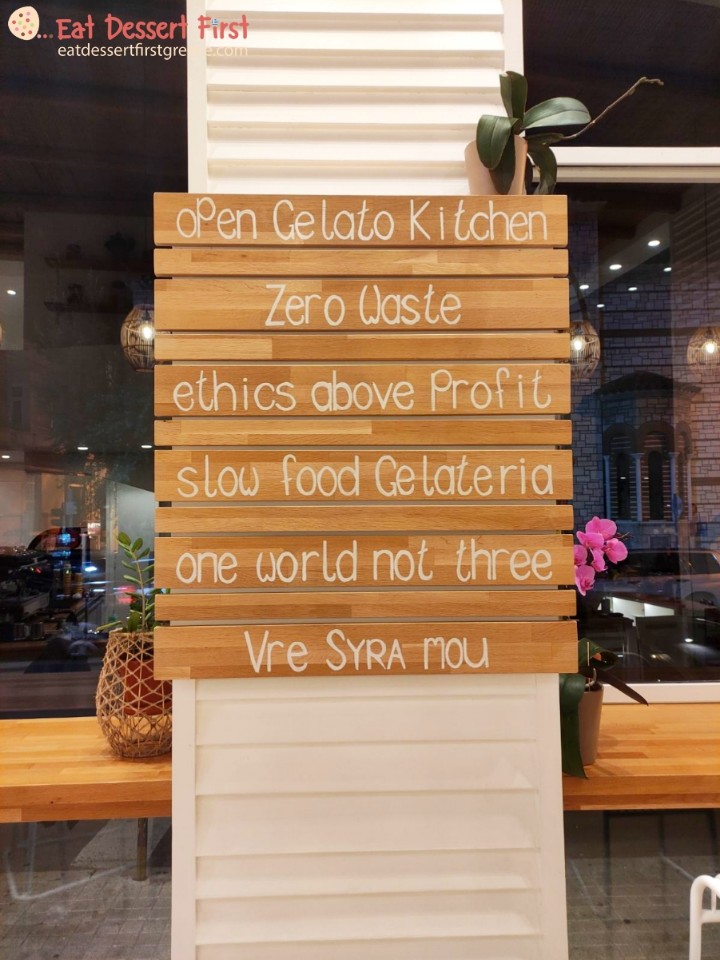 ... Eat Dessert First
eatdessertfirstgreece.com
oPen Gelato Kitchen
Zero Waste
ethics above Profit
slow food Gelateria
one world not three
Vre SYRA mou